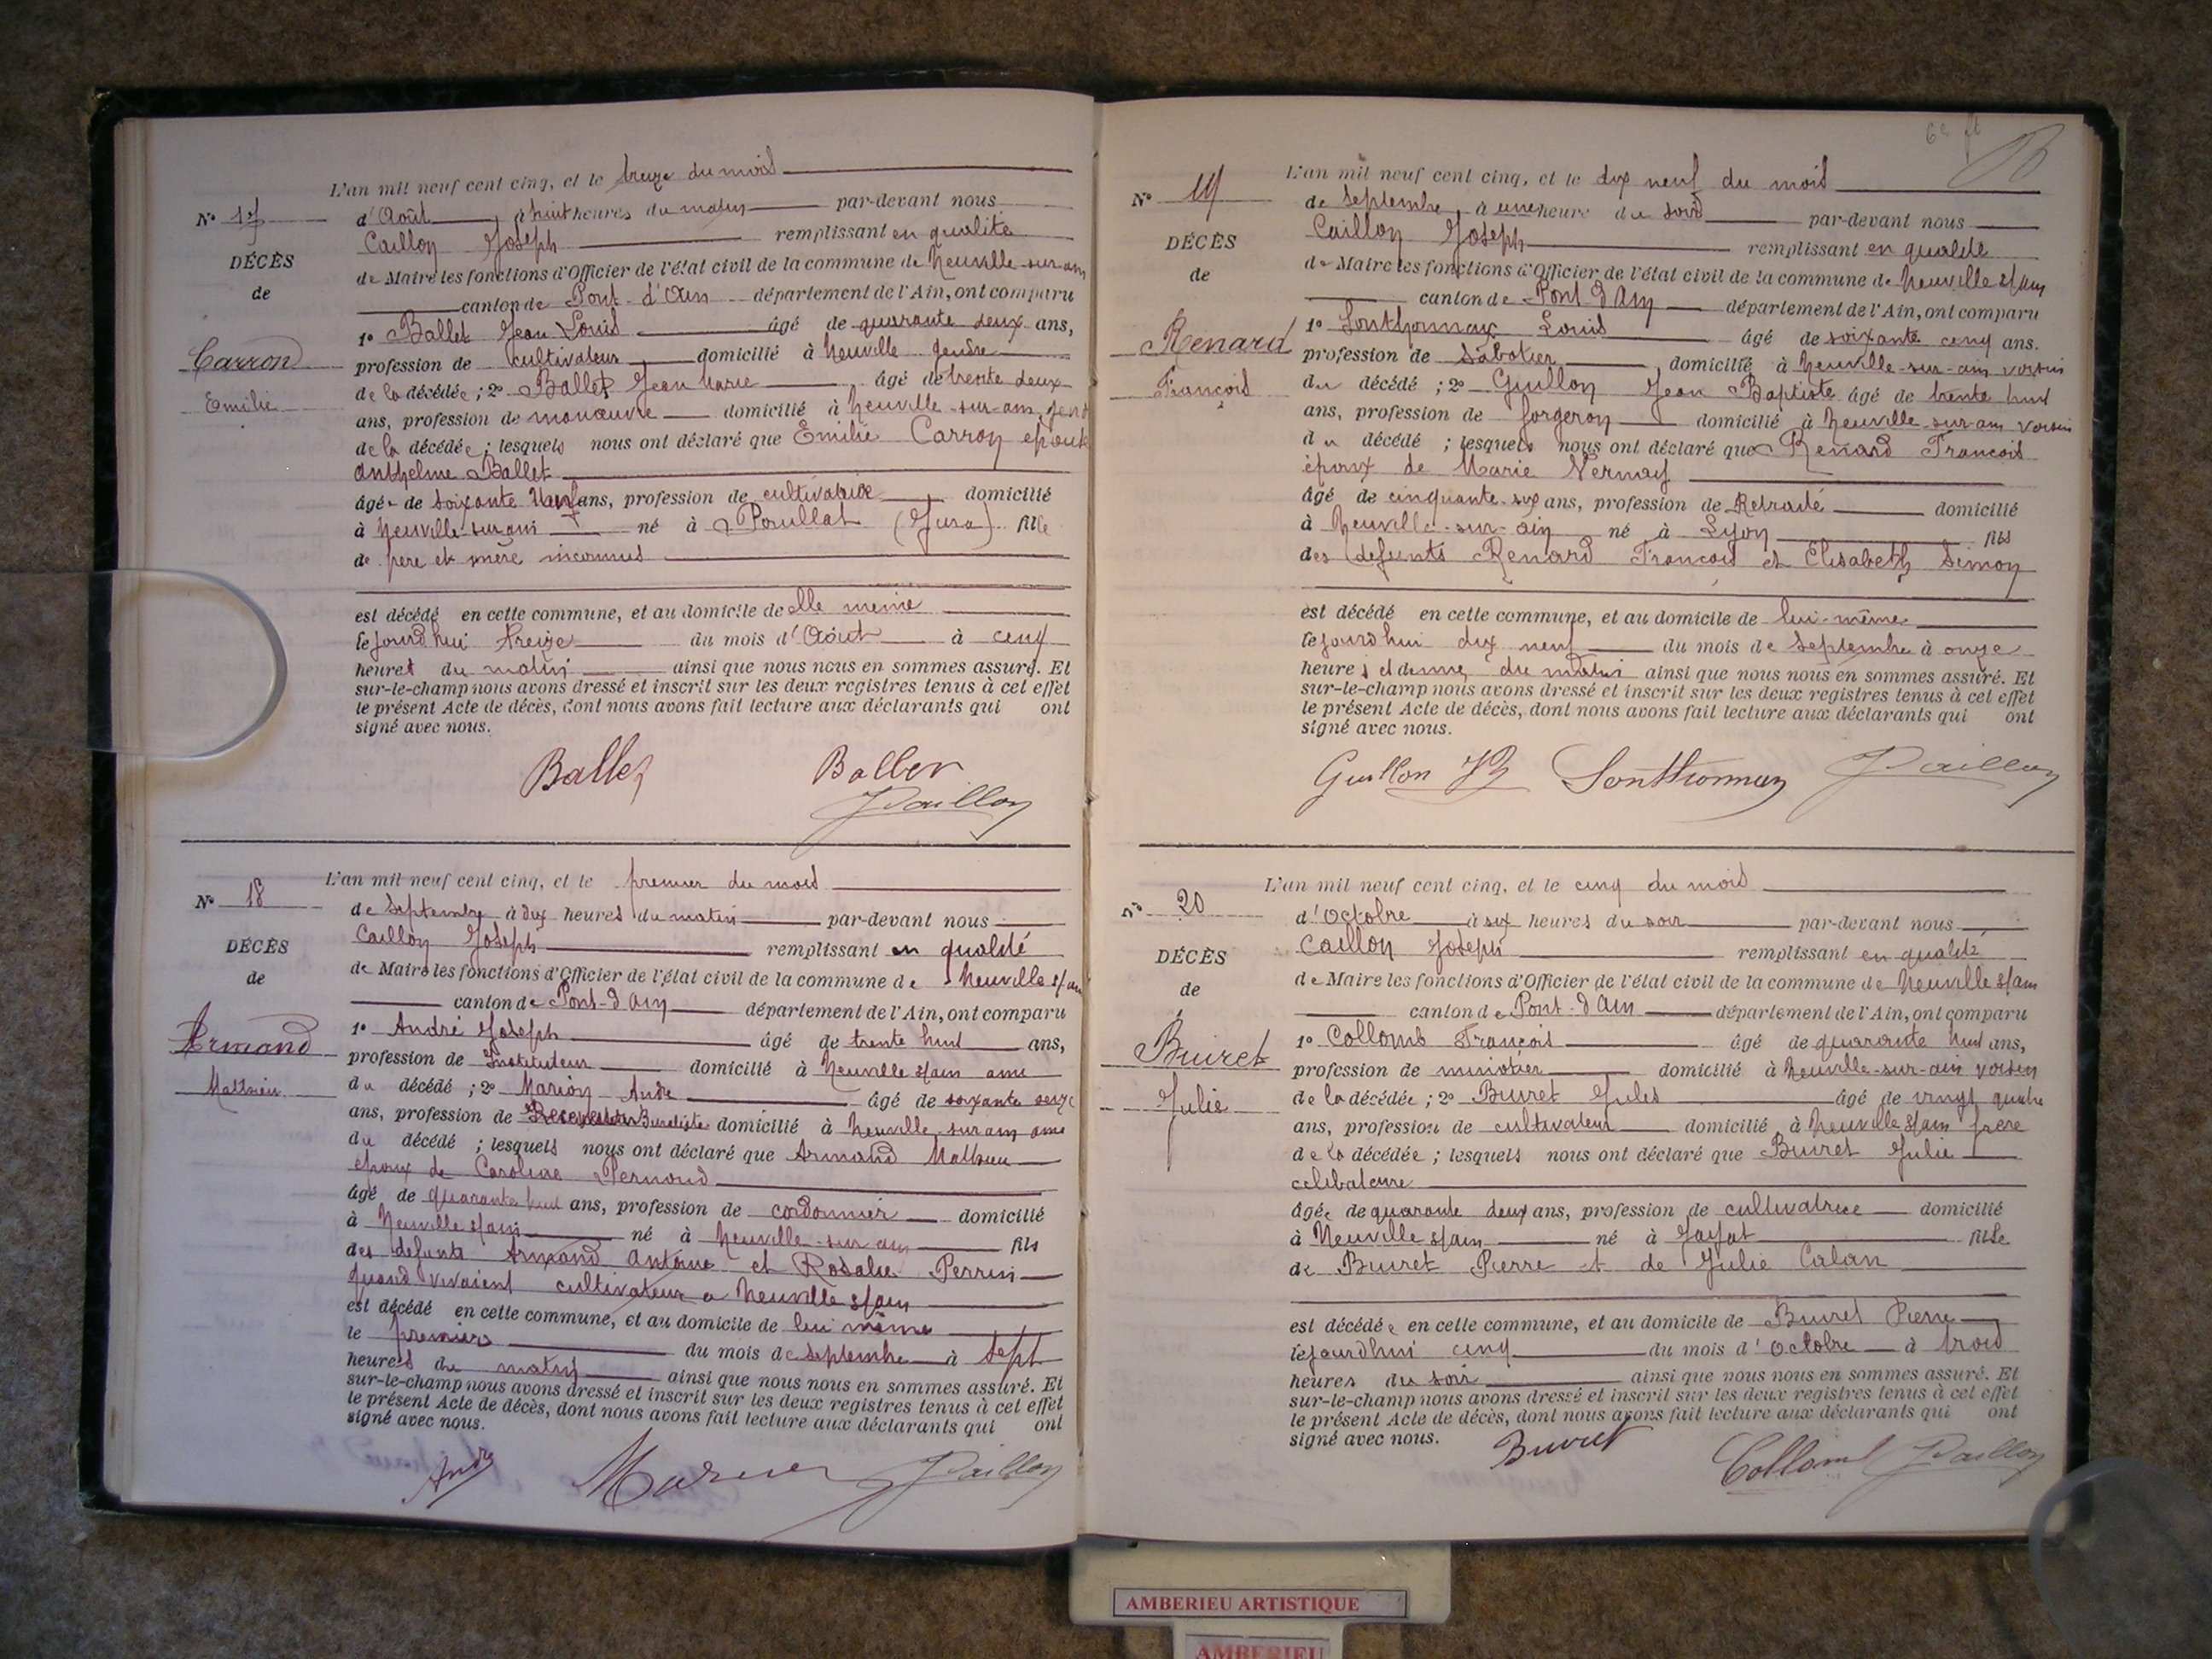 L'an mil neuf cent cinq, et le treize du mois
N° 17
d'Août, à huit heures du matin par-devant nous
Caillon Joseph remplissant en qualité
DÉCÈS
de Maire les fonctions d'Officier de l'état civil de la commune de Neuville-sur-ain
de
canton de Pont-d'Ain département de l'Ain, ont comparu
1° Ballet Jean Louis âgé de quarante deux ans,
Carrond
profession de cultivateur domicilié à Neuville gendre
de la décédée ; 2° Ballet Jean Marie, âgé de trente deux
Emilie
ans, profession de manœuvre domicilié à Neuville-sur-ain gend
de la décédée ; lesquels nous ont déclaré que Emilie Carron épouse
Anthelme Ballet
âgée de soixante neuf ans, profession de cultivatrice, domicilié
à Neuville-sur-ain né à Pouillat (Jura) fille
de père et mère inconnus
est décédé en cette commune, et au domicile de elle même
le jourd'hui treize du mois d'Août à cinq
heures du matin ainsi que nous nous en sommes assuré. Et
sur-le-champ nous avons dressé et inscrit sur les deux registres tenus à cet effet
le présent Acte de décès, dont nous avons fait lecture aux déclarants qui ont
signé avec nous.
Ballet Ballet
JCaillon
L'an mil neuf cent cinq, et le premier du mois
N° 18
de Septembre à dix heures du matin par-devant nous
Caillon Joseph remplissant en qualité
DÉCÈS
de Maire les fonctions d'Officier de l'état civil de la commune de Neuville s/ain
de
canton de Pont-d'Ain département de l'Ain, ont comparu
1° André Joseph âgé de trente huit ans,
Armand
profession de Instituteur domicilié à Neuville s/ain ami
Mathieu
du décédé ; 2° Marion André âgé de soixante seize
ans, profession de Buraliste domicilié à Neuville-sur-ain ami
du décédé ; lesquels nous ont déclaré que Armand Mathieu
époux de Caroline Pernoud
âgé de quarante huit ans, profession de cordonnier domicilié
à Neuville s/ain né à Neuville-sur-ain fils
des défunts Armand Antoine et Rosalie Perrin
quand vivaient cultivateur a Neuville s/ain
est décédé en cette commune, et au domicile de lui même
le premier du mois de septembre à sept
heures du matin ainsi que nous nous en sommes assuré. Et
sur-le-champ nous avons dressé et inscrit sur les deux registres tenus à cet effet
le présent Acte de décès, dont nous avons fait lecture aux déclarants qui ont
signé avec nous.
André Marion JCaillon
L'an mil neuf cent cinq, et le dix neuf du mois
N° 19
de Septembre, à une heure du soir par-devant nous
Caillon Joseph remplissant en qualité
DÉCÈS
de Maire les fonctions d'Officier de l'état civil de la commune de Neuville s/ain
de
canton de Pont-d'Ain département de l'Ain, ont comparu
1° Sonthonnax Louis âgé de soixante cinq ans.
Renard
profession de sabotier, domicilié à Neuville-sur-ain voisin
François
du décédé ; 2° Guillon Jean Baptiste âgé de trente huit
ans, profession de forgeron domicilié à Neuville-sur-ain voisin
du décédé ; lesquels nous ont déclaré que Renard François
époux de Marie Vernay
âgé de cinquante-six ans, profession de Retraité domicilié
à Neuville-sur-ain né à Lyon fils
des défunts Renard François et Elisabeth Simon
est décédé en cette commune, et au domicile de lui-même
le jourd'hui dix neuf du mois de septembre à onze
heures et demie du matin ainsi que nous nous en sommes assuré. Et
sur-le-champ nous avons dressé et inscrit sur les deux registres tenus à cet effet
le présent Acte de décès, dont nous avons fait lecture aux déclarants qui ont
signé avec nous.
Guillon JB Sonthonnax JCaillon
L'an mil neuf cent cinq, et le cinq du mois
N° 20
d'Octobre à six heures du soir par-devant nous
Caillon Joseph remplissant en qualité
DÉCÈS
de Maire les fonctions d'Officier de l'état civil de la commune de Neuville s/ain
de
canton de Pont-d'Ain département de l'Ain, ont comparu
1° Collomb François âgé de quarante huit ans,
Buiret
profession de minotier domicilié à Neuville-sur-ain voisin
Julie
de la décédée ; 2° Buiret Jules âgé de vingt quatre
ans, profession de cultivateur domicilié à Neuville s/ain frère
de la décédée ; lesquels nous ont déclaré que Buiret Julie
célibataire
âgée de quarante deux ans, profession de cultivatrice domicilié
à Neuville s/ain né à Jayat fille
de Buiret Pierre et de Julie Calan
est décédée en cette commune, et au domicile de Buiret Pierre
le jourd'hui cinq du mois d'Octobre à trois
heures du soir ainsi que nous nous en sommes assuré. Et
sur-le-champ nous avons dressé et inscrit sur les deux registres tenus à cet effet
le présent Acte de décès, dont nous avons fait lecture aux déclarants qui ont
signé avec nous.
Buiret Collomb JCaillon
AMBERIEU ARTISTIQUE
AMBERIEU